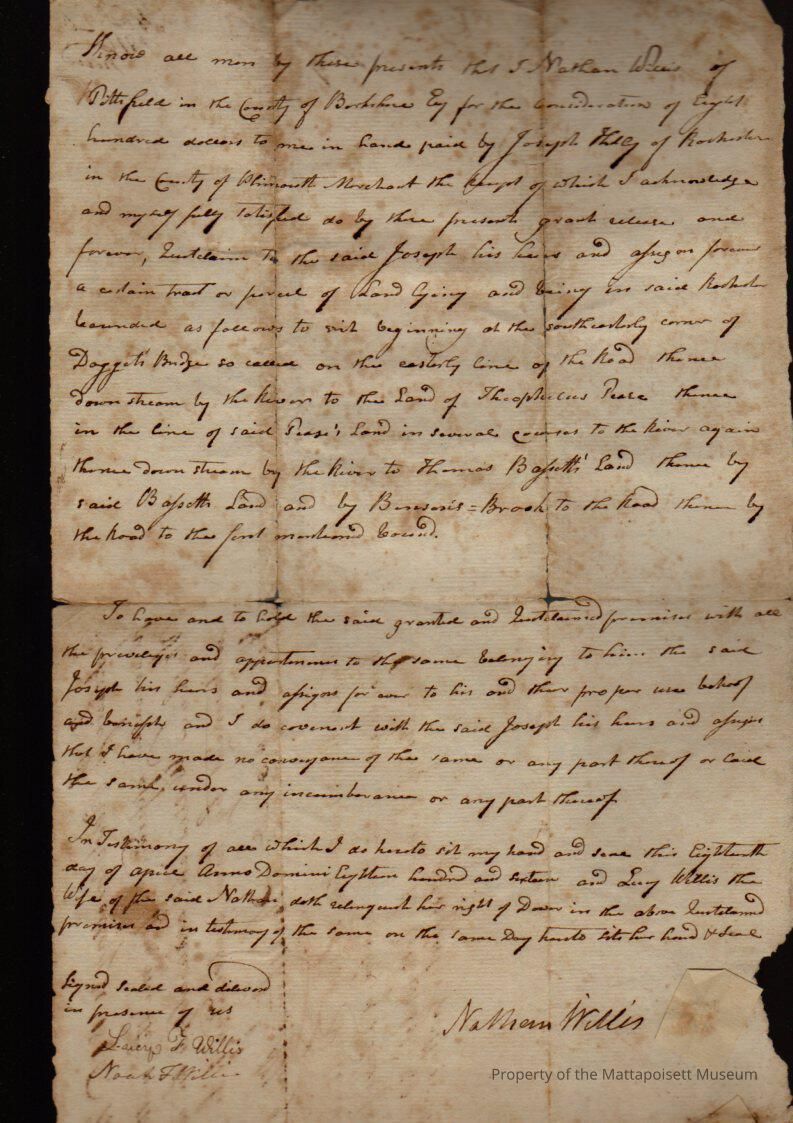 Know all men by these presents that I Nathan Willis of
Pittsfield in the County of Berkshire Esq for the consideration of Eight
hundred dollars to me in hand paid by Joseph of Rochester
in the County of Plimouth Merchant the receipt of which I acknowledge
and myself fully satisfied do by these presents grant release and
forever, Quitclaim to the said Joseph his heirs and assigns forever
a certain tract or parcel of Land lying and being in said Rochester
bounded as follows to wit beginning at the southeasterly corner of
Dagget's Bridge so called on the easterly line of the Road thence
down stream by the River to the Land of Theophilus Pease thence
in the line of said Pease's Land in several courses to the River again
thence down stream by the River to Thomas Bassetts' Land thence by
said Bassetts Land and by Brook to the Road thence by
the Road to the first mentioned bound.
To have and to hold the said granted and Quitclaimed premises with all
the priveliges and appertenances to the same belonging to him the said
Joseph his heirs and assigns for ever to his and their proper use behoof
and benefit and I do covenant with the said Joseph his heirs and assigns
that I have made no conveyance of the same or any part thereof or laid
the same under any incumberance or any part thereof
In Testimony of all which I do hereto set my hand and seal this Eighteenth
day of april Anno Domini Eighteen hundred and sixteen and Lucy Willis the
Wife of the said Nathan doth relinquish her right of Dower in the above Quitclaimed
premises and in testimony of the same on the same Day hereto sets her hand & Seal
Signed sealed and delivered
in presence of us
Nathan Willis
F Willis
Noah F Willis
Property of the Mattapoisett Museum